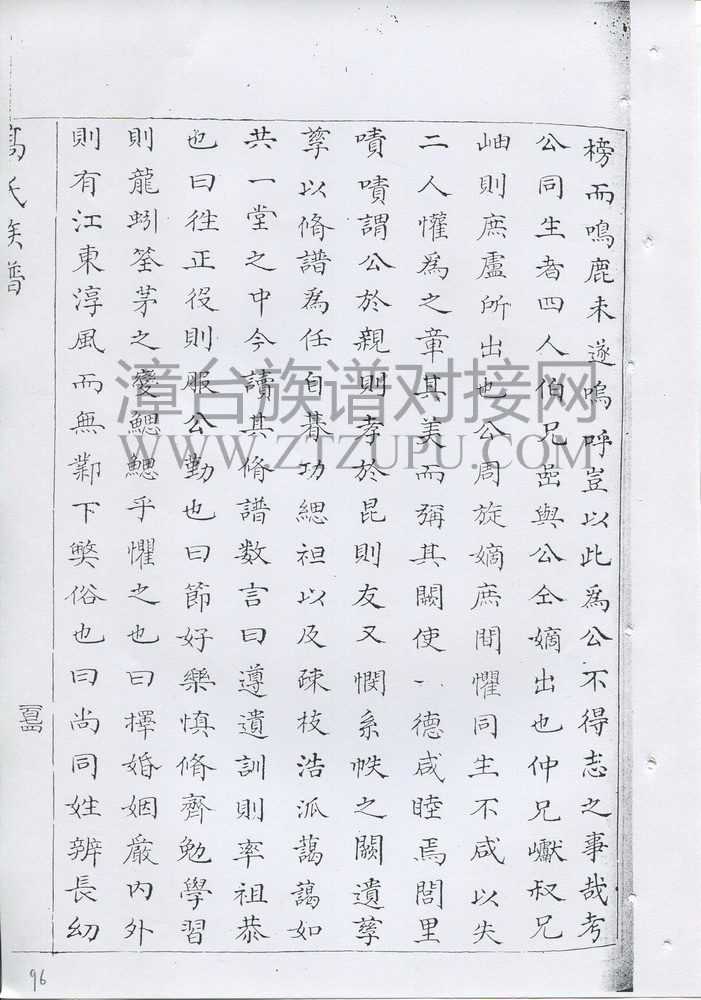 榜而鳴鹿未遂嗚呼豈以此為公不得志之事哉考
公同生者四人伯兄與公仝嫡出也仲兄巘叔兄
岫則庶盧所出也公周旋嫡庶間懼同生不咸以失
二人懽為之章其美而稱其闕使一德咸睦焉閭里
嘖嘖謂公於親則孝於昆則友又憫系帙之闕遺孳
孳以脩譜為任自朞功緦袒以及疎枝浩派藹藹如
共一堂之中今讀其脩譜数言曰遵遺訓則率祖恭
也曰徃正役則服公勤也曰節好樂慎脩齊勉學習
則龍蚓荃茅之變鰓鰓乎懼之也曰擇婚姻嚴內外
則有江東淳風而無鄴下獘俗也曰尚同姓辨長幼
高氏族譜
96
漳台族谱对接网
WWW.ZTZUPU.COM